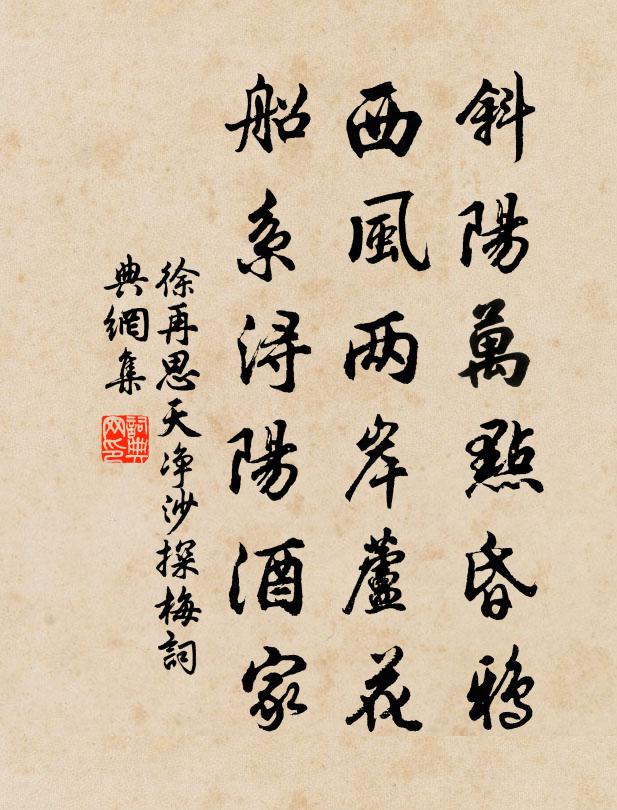 斜陽萬點昏鴉
西風兩岸蘆花
船系潯陽酒家
徐再思天净沙探梅詞
典網集
詞典网印